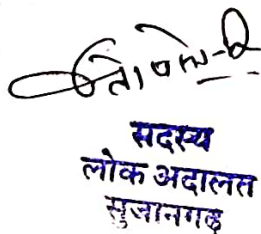 सदस्य
लोक अदालत
सुजानगढ